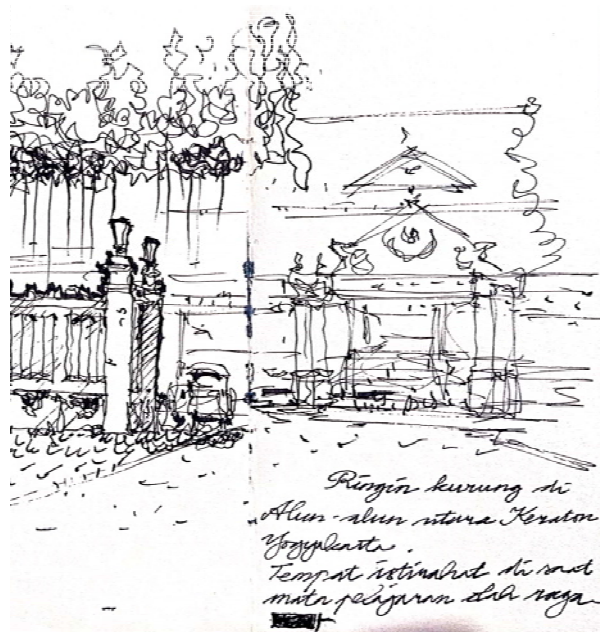 Ringin kurung di
Alun-alun utara Keraton
Yogyakarta.
Tempat istirahat di saat
mata pelajaran olah raga